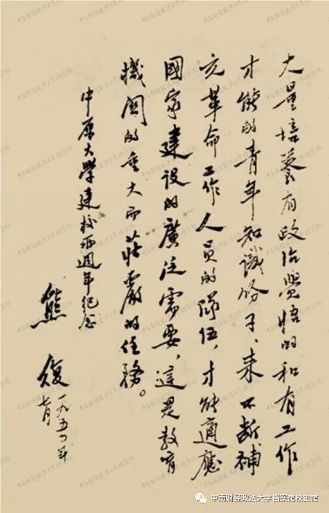 大量培養有政治覺悟的和有工作
才能的青年知識份子，来不断補
充革命工作人員的隊伍，才能適應
國家建設的廣泛需要，這是教育
機関的重大而莊嚴的任務。
中原大學建校两週年纪念
熊復
一九五〇年
七月
中南财经政法大学档案馆校史馆